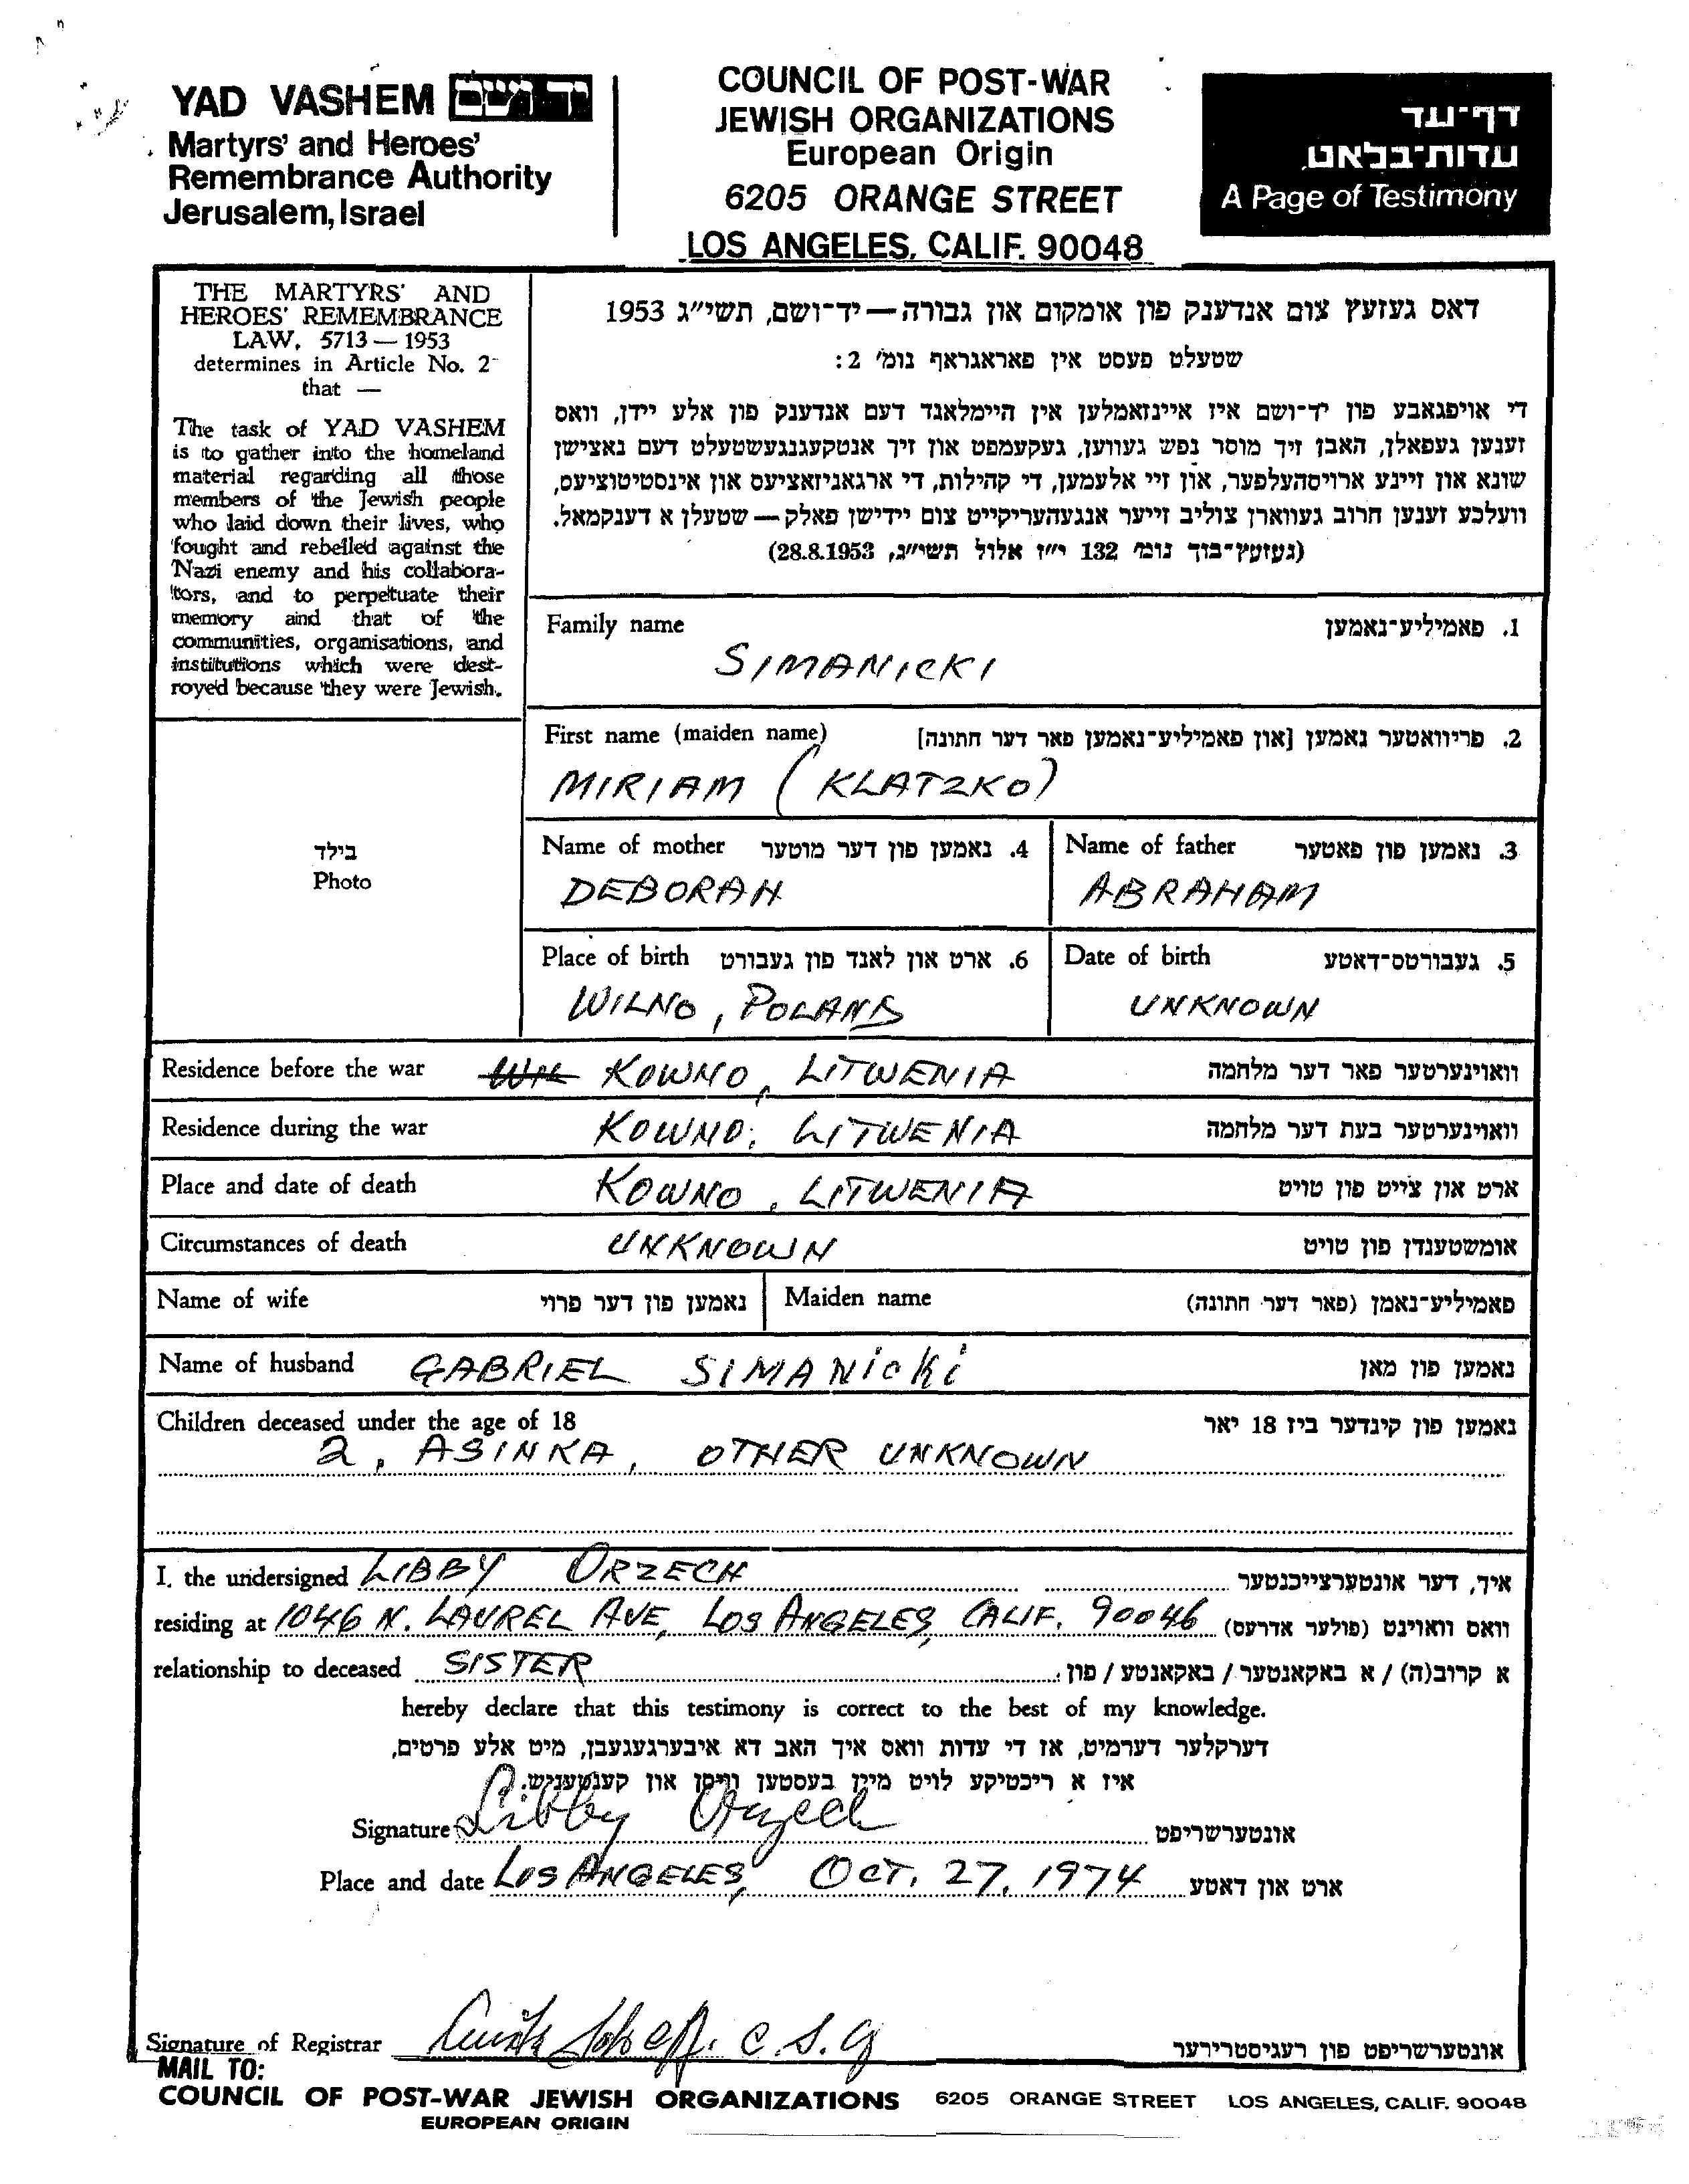 YAD VASHEM יד ושם
Martyrs' and Heroes'
Remembrance Authority
Jerusalem, Israel
COUNCIL OF POST-WAR
JEWISH ORGANIZATIONS
European Origin
6205 ORANGE STREET
LOS ANGELES, CALIF. 90048
דף־עד
עדות־בלאט
A Page of Testimony
THE MARTYRS' AND
HEROES' REMEMBRANCE
LAW, 5713 — 1953
determines in Article No. 2
that —
The task of YAD VASHEM
is to gather into the homeland
material regarding all those
members of the Jewish people
who laid down their lives, who
fought and rebelled against the
Nazi enemy and his collabora-
tors, and to perpetuate their
memory and that of the
communities, organisations, and
institutions which were dest-
royed because they were Jewish.
דאס געזעץ צום אנדענק פון אומקום און גבורה — יד־ושם, תשי״ג 1953
שטעלט פעסט אין פאראגראף נומ׳ 2:
די אויפגאבע פון יד־ושם איז איינזאמלען אין היימלאנד דעם אנדענק פון אלע יידן, וואס
זענען געפאלן, האבן זיך מוסר נפש געווען, געקעמפט און זיך אנטקעגנגעשטעלט דעם נאצישן
שונא און זיינע ארויסהעלפער, און זיי אלעמען, די קהילות, די ארגאניזאציעס און אינסטיטוציעס,
וועלכע זענען חרוב געווארן צוליב זייער אנגעהעריקייט צום יידישן פאלק — שטעלן א דענקמאל.
(געזעץ־בוך נומ׳ 132 י״ז אלול תשי״ג, 28.8.1953)
Family name 1. פאמיליע־נאמען
SIMANICKI
First name (maiden name) 2. פריוואטער נאמען [און פאמיליע־נאמען פאר דער חתונה]
MIRIAM (KLATZKO)
Name of mother 4. נאמען פון דער מוטער
DEBORAH
Name of father 3. נאמען פון פאטער
ABRAHAM
Place of birth 6. ארט און לאנד פון געבורט
WILNO, POLAND
Date of birth 5. געבורטס־דאטע
UNKNOWN
בילד
Photo
Residence before the war KOWNO, LITWENIA וואוינערטער פאר דער מלחמה
Residence during the war KOWNO, LITWENIA וואוינערטער בעת דער מלחמה
Place and date of death KOWNO, LITWENIA ארט און צייט פון טויט
Circumstances of death UNKNOWN אומשטענדן פון טויט
Name of wife נאמען פון דער פרוי Maiden name פאמיליע־נאמן (פאר דער חתונה)
Name of husband GABRIEL SIMANICKI נאמען פון מאן
Children deceased under the age of 18 נאמען פון קינדער ביז 18 יאר
2, ASINKA, OTHER UNKNOWN
I, the undersigned LIBBY ORZECH איך, דער אונטערצייכנטער
residing at 1046 N. LAUREL AVE, LOS ANGELES, CALIF. 90046 וואס וואוינט (פולער אדרעס)
relationship to deceased SISTER א קרוב(ה) / א באקאנטער / באקאנטע / פון:
hereby declare that this testimony is correct to the best of my knowledge.
דערקלער דערמיט, אז די עדות וואס איך האב דא איבערגעגעבן, מיט אלע פרטים,
איז א ריכטיקע לויט מיין בעסטען וויסן און קענטעניש.
Signature Libby Orzech אונטערשריפט
Place and date LOS ANGELES, OCT. 27, 1974 ארט און דאטע
Signature of Registrar C. S. G אונטערשריפט פון רעגיסטרירער
MAIL TO:
COUNCIL OF POST-WAR JEWISH ORGANIZATIONS 6205 ORANGE STREET LOS ANGELES, CALIF. 90048
EUROPEAN ORIGIN